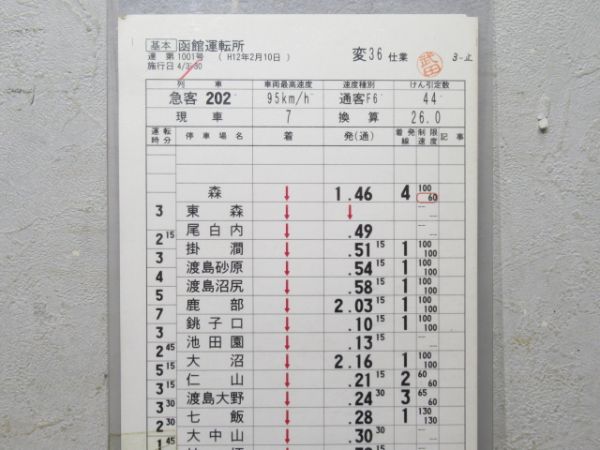 基本 函館運転所
運 第 1001号 ( H12年2月10日 )
施行日 4/30
変36 仕業
武田
3-止
列 車 車両最高速度 速度種別 けん引定数
急客 202 95km/h 通客F6 44
現 車 7 換 算 26.0
運転時分 停車場名 着 発(通) 着発線 制限速度 記事
森 ↓ 1.46 4 100 60
3
東 森 ↓ ↓ -- --
尾白内 ↓ .49 -- --
2 15
掛 澗 ↓ .51 15 1 100 100
3
渡島砂原 ↓ .54 15 1 100 100
4
渡島沼尻 ↓ .58 15 1 100 100
5
鹿 部 ↓ 2.03 15 1 100 100
7
銚子口 ↓ .10 15 1 100 100
3
池田園 ↓ .13 15 -- --
2 45
大 沼 ↓ 2.16 1 100 100
5 15
仁 山 ↓ .21 15 2 60 60
3 15
渡島大野 ↓ .24 30 3 65 60
3 30
七 飯 ↓ .28 1 130 130
2 30
大中山 ↓ .30 30 -- --
1 45